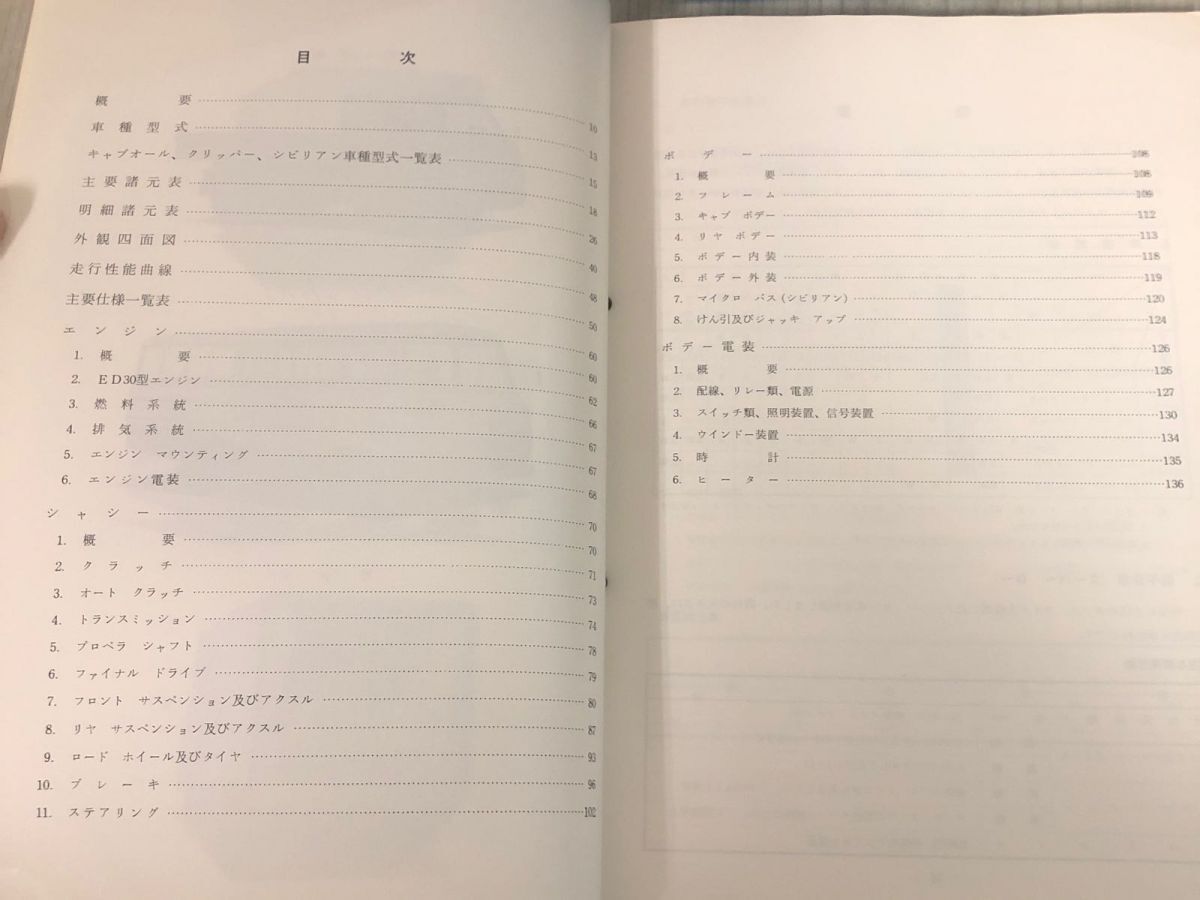 目 次
概 要 10
車種型式 13
キャブオール、クリッパー、シビリアン車種型式一覧表 15
主要諸元表 18
明細諸元表 26
外観四面図 40
走行性能曲線 48
主要仕様一覧表 50
エンジン 60
1. 概 要 60
2. ED30型エンジン 62
3. 燃料系統 66
4. 排気系統 67
5. エンジン マウンティング 67
6. エンジン電装 68
シャシー 70
1. 概 要 70
2. クラッチ 71
3. オート クラッチ 73
4. トランスミッション 74
5. プロペラ シャフト 78
6. ファイナル ドライブ 79
7. フロント サスペンション及びアクスル 80
8. リヤ サスペンション及びアクスル 87
9. ロード ホイール及びタイヤ 93
10. ブレーキ 96
11. ステアリング 102
ボデー 108
1. 概 要 108
2. フレーム 109
3. キャブ ボデー 112
4. リヤ ボデー 113
5. ボデー内装 118
6. ボデー外装 119
7. マイクロ バス(シビリアン) 120
8. けん引及びジャッキ アップ 124
ボデー電装 126
1. 概 要 126
2. 配線、リレー類、電源 127
3. スイッチ類、照明装置、信号装置 130
4. ウインドー装置 134
5. 時 計 135
6. ヒーター 136